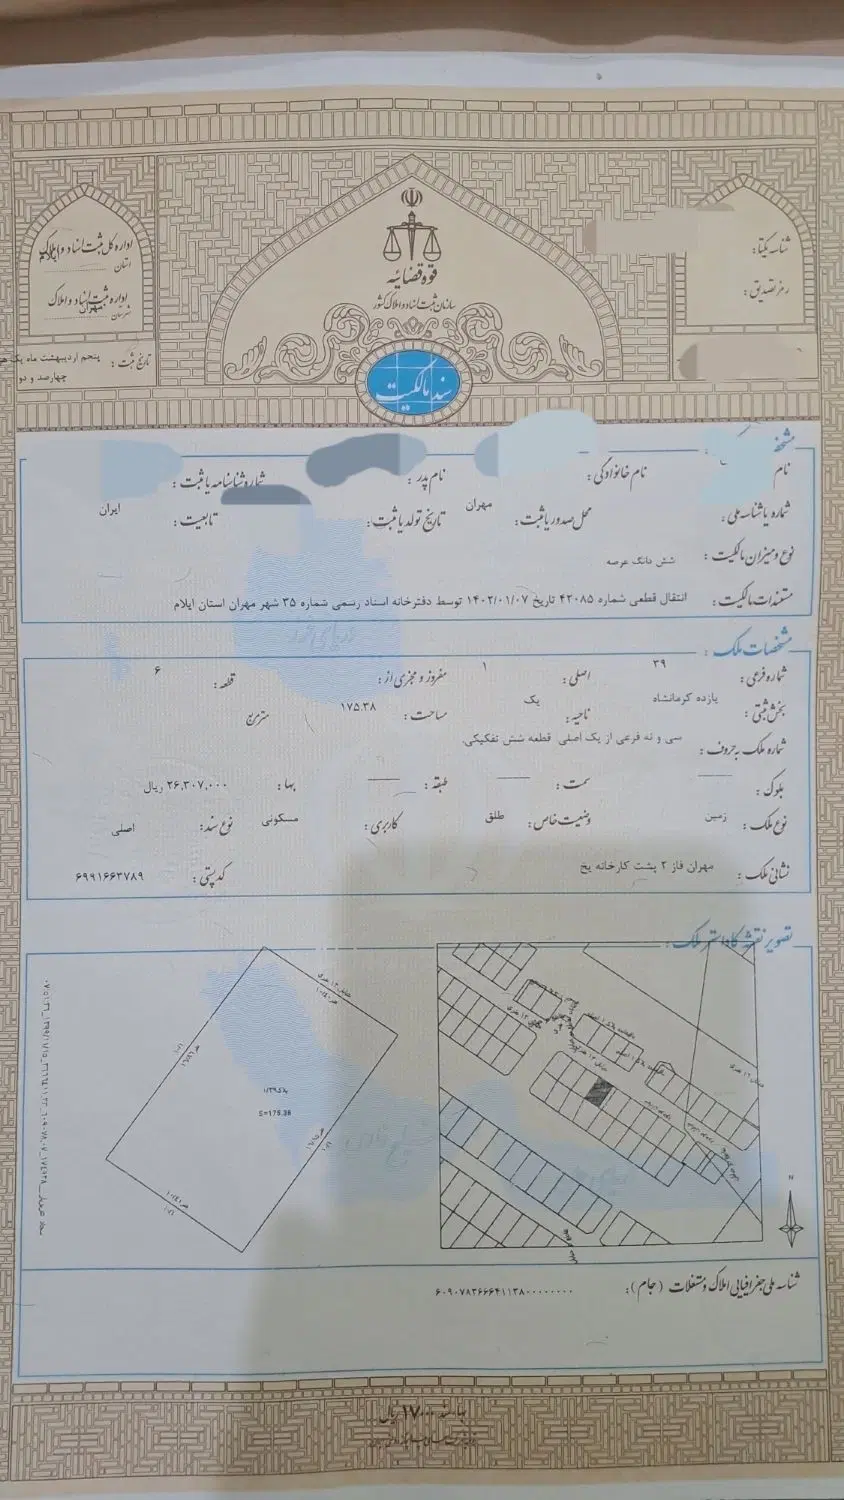 قوه قضائیه
سازمان ثبت اسناد و املاک کشور
سند مالکیت
شناسه یکتا:
رمز تصدیق:
اداره کل ثبت اسناد و املاک
استان ایلام
اداره ثبت اسناد و املاک
شهرستان مهران
تاریخ ثبت: پنجم اردیبهشت ماه یک
چهارصد و دو
نام نام خانوادگی: نام پدر: شماره شناسنامه یا ثبت:
شماره یا شناسه ملی: محل صدور یا ثبت: مهران تاریخ تولد یا ثبت: تابعیت: ایران
نوع و میزان مالکیت: شش دانگ عرصه
مستندات مالکیت: انتقال قطعی شماره ۴۲۰۸۵ تاریخ ۱۴۰۲/۰۱/۰۷ توسط دفترخانه اسناد رسمی شماره ۳۵ شهر مهران استان ایلام
مشخصات ملک:
شماره فرعی: ۳۹ اصلی: ۱ مفروز و مجزی از: قطعه: ۶
بخش ثبتی: یازده کرمانشاه ناحیه: یک مساحت: ۱۷۵.۳۸ مترمربع
شماره ملک به حروف: سی و نه فرعی از یک اصلی قطعه شش تفکیکی.
بلوک: —— سمت: —— طبقه: —— بها: ۲۶,۳۰۷,۰۰۰ ریال
نوع ملک: زمین وضعیت خاص: طلق کاربری: مسکونی نوع سند: اصلی
نشانی ملک: مهران فاز ۲ پشت کارخانه یخ کد پستی: ۶۹۹۱۶۶۳۷۸۹
تصویر نقشه کاداستر ملک:
پلاک ۱/۳۹
S=175.38
N
شناسه ملی جغرافیایی املاک و مستغلات (جام):
بهاء سند ۱۷۰۰۰ ریال